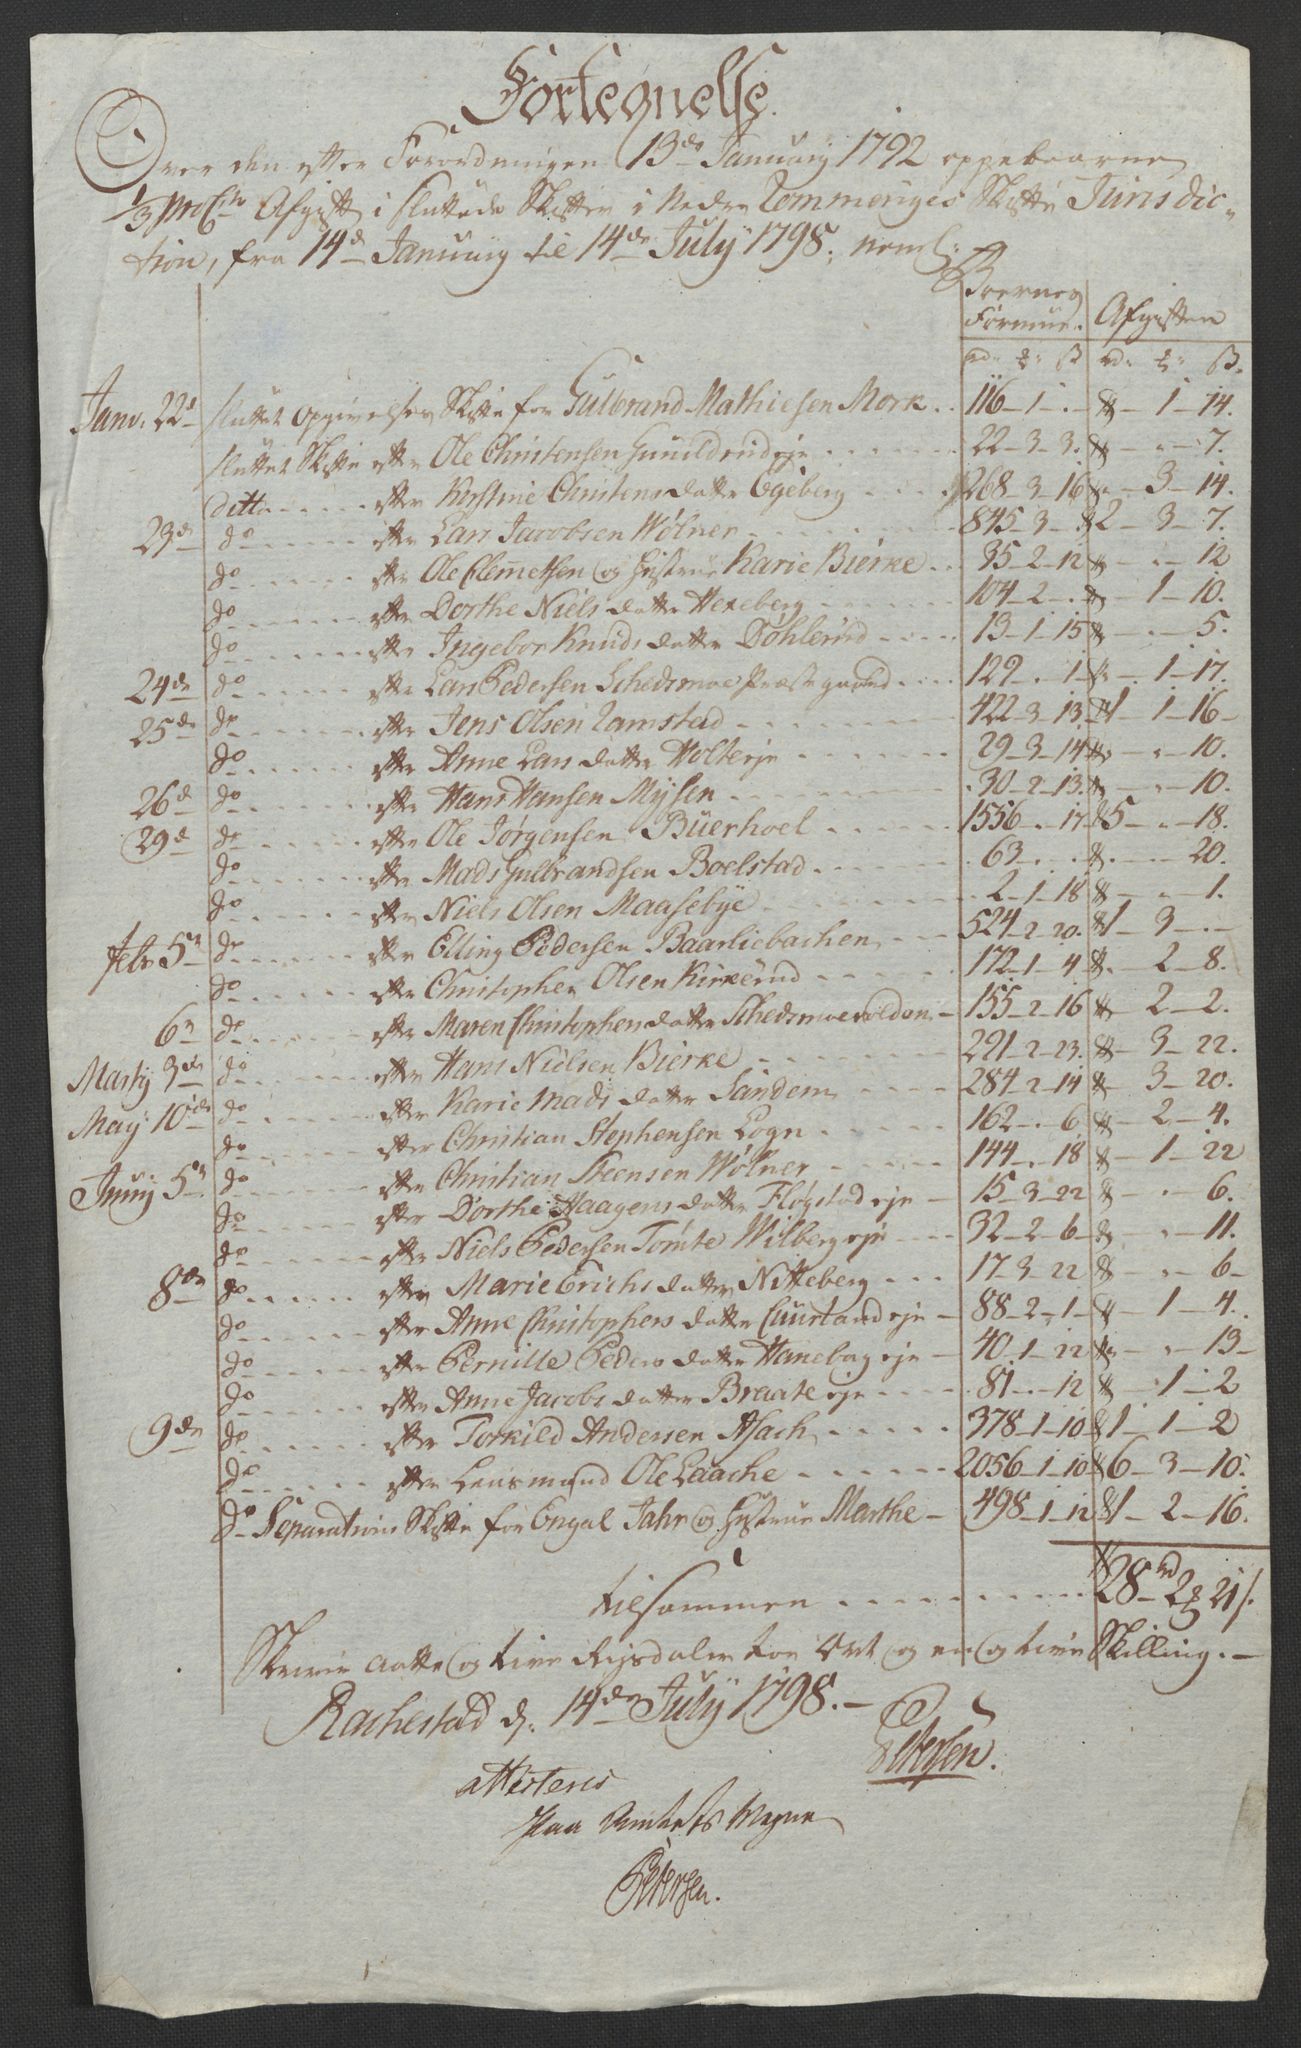 Fortegnelse.
Over den efter Forordningen 13de January 1792 oppebaarne
1/3 ProCto Afgift i sluttede Skifter i Nedre Rommeriges Skifte Jurisdic-
tion, fra 14de January til 14de July 1798, neml:
Boernes Formue. Afgiften
rd. ß rd. ß.
Janv. 22d sluttet Opgivelses Skifte for Gulbrand Mathiesen Mork .. 116-1-. - 1-14.
sluttet Skifte efter Ole Christensen Gunildrud eje 22-3-3. - . - 7.
Ditto efter Kirstine Christens datter Egeberg 268-3-16 - 3-14.
23de do efter Lars Jacobsen Wølner 845-3- 2-3-7.
do efter Ole Clemetsen og Hustrue Karie Bierke 35-2-12 - . - 12
do efter Dorthe Niels datter Hexeberg 104-2-. - 1-10.
do efter Ingebor Knuds datter Døhlerud 13-1-15 - . - 5.
24de do efter Lars Pedersen Schedsmoe Præstegaard 129-.-1 - 1-17.
25de do efter Jens Olsen Ramstad 422-3-13 1-1-16-
do efter Anne Lars datter Holter eje 29-3-14 - . - 10.
26d do efter Hans Hansen Mysen 30-2-13. - . - 10.
29d do efter Ole Jørgensen Buerhoel 1556-.-17 5-.-18.
do efter Mads Gulbrandsen Boelstad 63-.-. - . - 20.
do efter Niels Olsen Maasebye 2-1-18 - . - 1.
Febr 5te do efter Elling Pedersen Baarliebachen 524-2-20. 1-3-.-
do efter Christopher Olsen Kirkerud 172-1-4 . 2-8.
6te do efter Maren Christophers datter Schedsmoevolden - 155-2-16 - 2-2.
Marty 3de do efter Hans Nielsen Bierke 291-2-23. - 3-22.
May 10de do efter Karie Mads datter Sandem 284-2-14 - 3-20.
do efter Christian Stephensen Logn 162-.-6 - 2-4.
Juny 5te do efter Christian Steensen Wølner 144-.-18 - 1-22
do efter Dorthe Haagens datter Fløgstad eje - 15-3-22 - . - 6.
do efter Niels Pedersen Tomte Wilberg eje 32-2-6 - . - 11.
8de do efter Marie Erichs datter Nitteberg 17-3-22 - . - 6-
do efter Anne Christophers datter Cuurland eje - 88-2-1 - 1-4.
do efter Pernille Peders datter Haneborg eje - 40-1-22 - . - 13-
do efter Anne Jacobs datter Braate eje 81-.-12 - 1-2
9de do efter Torkild Andersen Asach 378-1-10 1-1-2
do efter Lensmand Ole Laache 2056-1-10 6-3-10.
do Separations Skifte for Engal Jahr og Hustrue Marthe - 498-1-12 1-2-16.
tilsammen 28rd 2 21ß.
Skriver aatte og tive Rigsdaler toe Ort og en og tive Skilling.-
Rachestad d. 14de July 1798.-
Petersen.
attesteres
paa Amtets Vegne
Petersen.